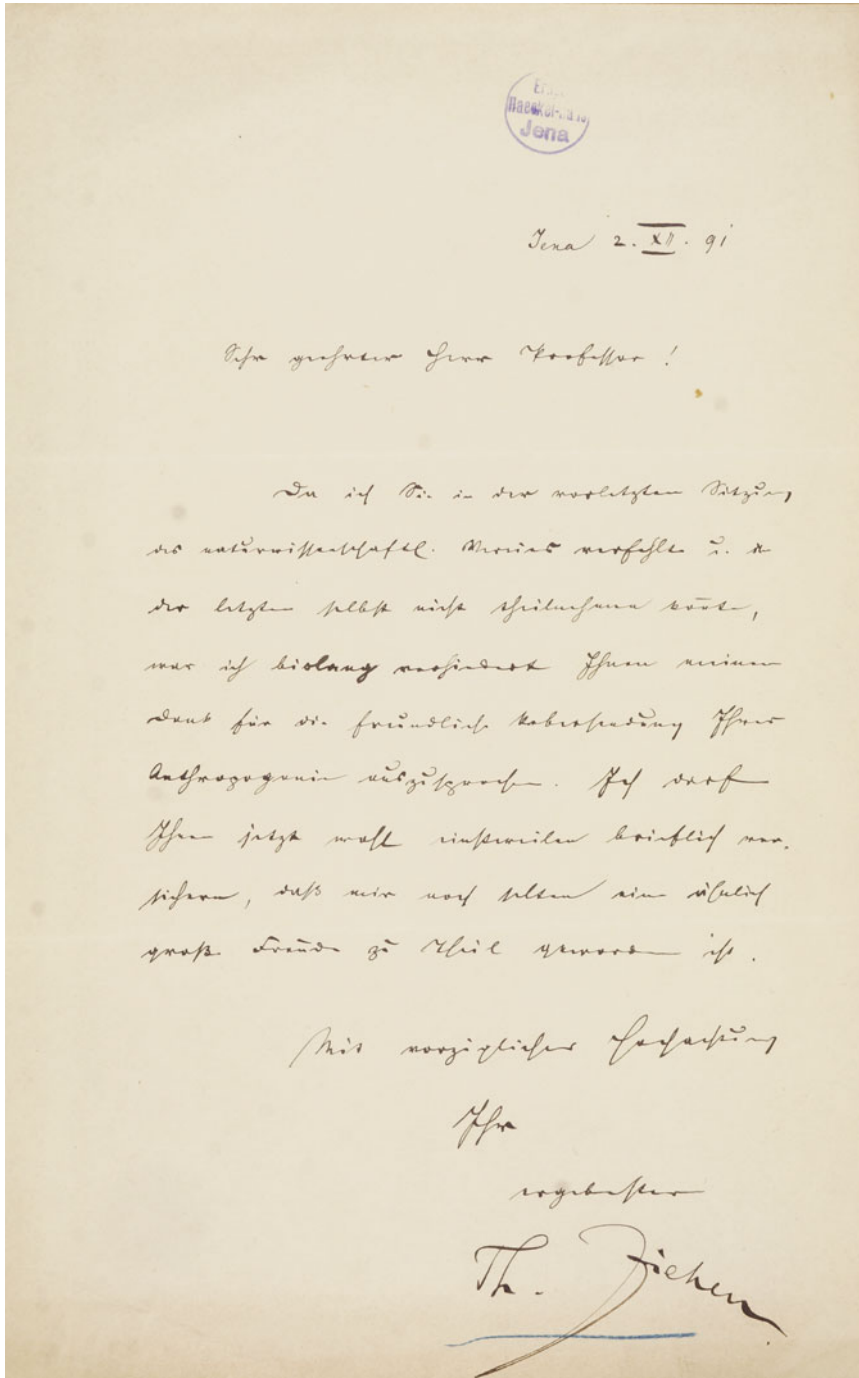 Ernst
Haeckel-Haus
Jena
Jena 2. XII. 91
Sehr geehrter Herr Professor!
Da ich Sie in der vorletzten Sitzung
des naturwissenschaftl. Vereines verfehlte u. an
der letzten selbst nicht theilnehmen koñte,
war ich bislang verhindert Ihnen meinen
Dank für die freundliche Uebersendung Ihrer
Anthropogenie auszusprechen. Ich darf
Ihnen jetzt wohl einstweilen brieflich ver-
sichern, daß mir noch selten eine ähnlich
große Freude zu Theil geworden ist.
Mit vorzüglicher Hochachtung
Ihr
ergebenster
Th. Ziehen